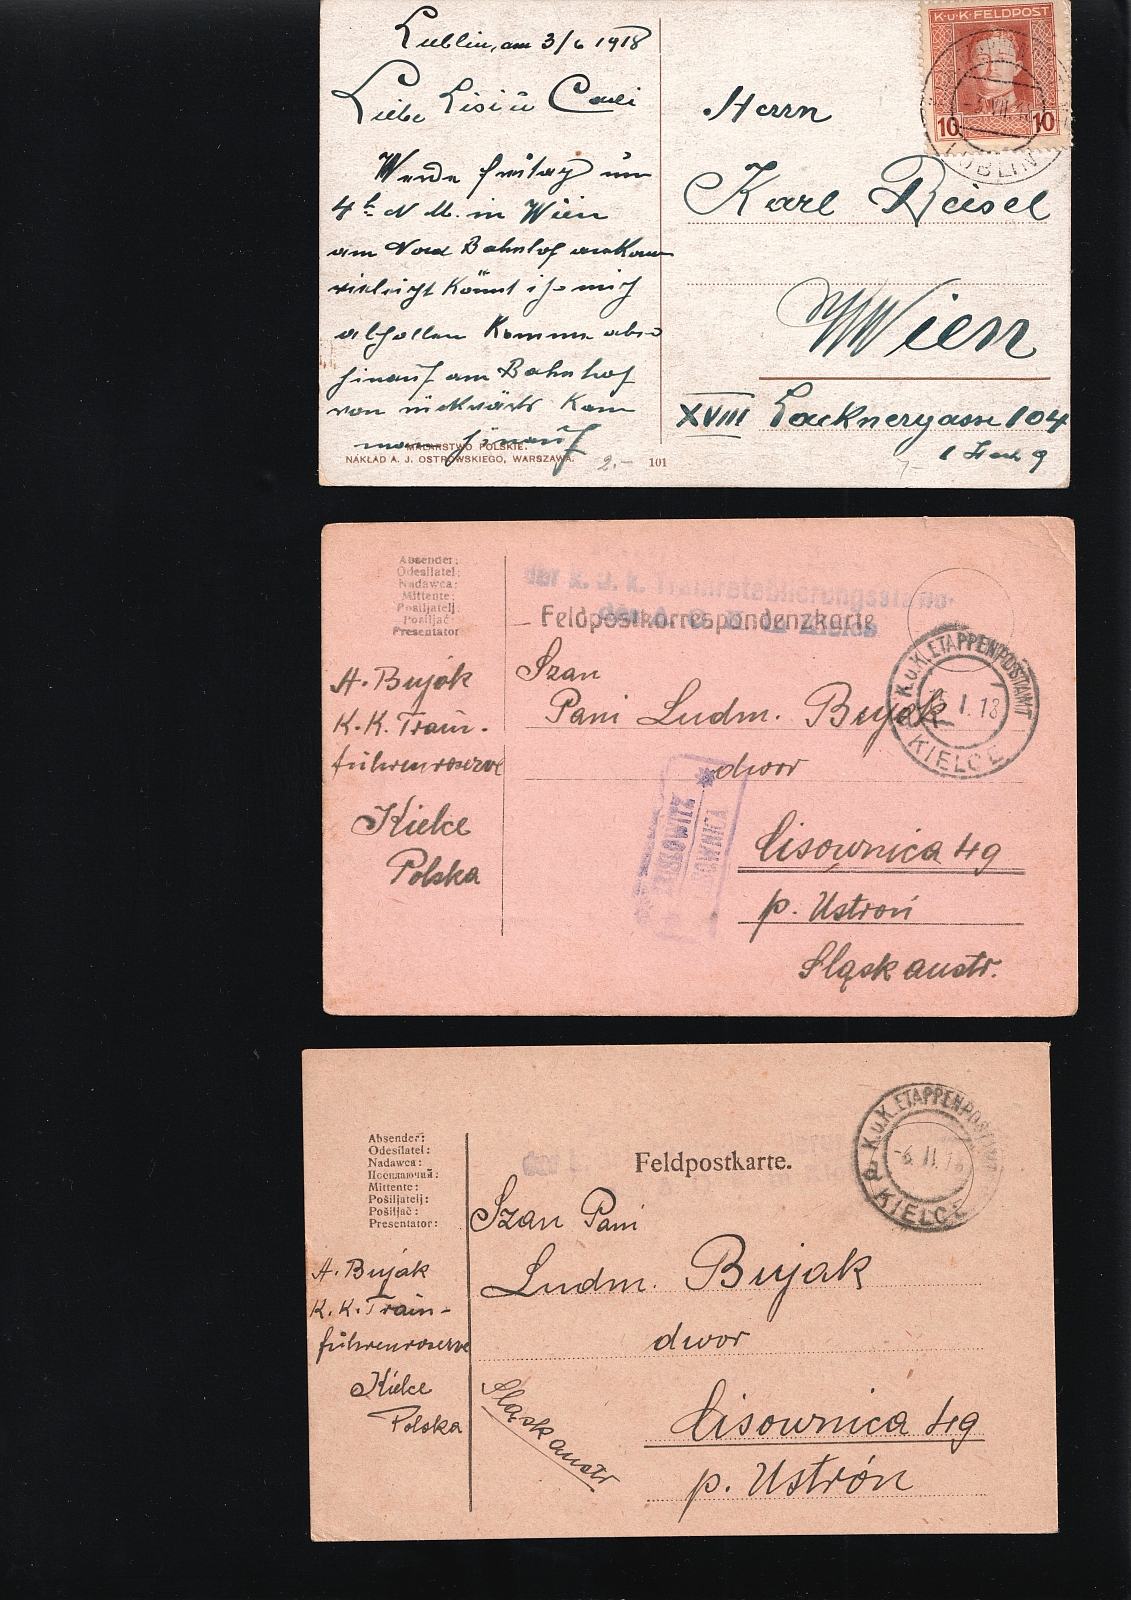 Lublin, am 3/6 1918
Liebe Lisi u
Werde freitag um
4h N M. in Wien
am Nord Bahnhof ankom
vieleicht könnt ihr mich
abhollen Komme also
hinauf am Bahnhof
von rückwärts kom
man hinauf
MALARSTWO POLSKIE.
NAKŁAD A. J. OSTROWSKIEGO, WARSZAWA.
2.-
101
K.u.K. FELDPOST
10 10
LUBLIN
Herrn
Karl Beisel
Wien
XVIII Lacknergasse 104
Absender:
Odesílatel:
Nadawca:
Mittente:
Pošiljatelj:
Pošiljač:
Presentator
A. Bujak
K.K. Train-
führenreserve
Kielce
Polska
der k. u. k. Trainretablierungsstation
Feldpostkorrespondenzkarte
Szan
Pani Ludm. Bujak
dwor
Lisownica 49
p. Ustroń
Śląsk austr.
K.u.K. ETAPPENPOSTAMT
I. 18
KIELCE
LISOWNICA
Absender:
Odesílatel:
Nadawca:
Посилаючий:
Mittente:
Pošiljatelj:
Pošiljač:
Presentator:
A. Bujak
K. K. Train-
führenreserve
Kielce
Polska
Feldpostkarte.
Szan Pani
Ludm. Bujak
dwor
Lisownica 49
p. Ustrón
Śląsk austr
K.u.K. ETAPPENPOSTAMT
-6. II. 18
a KIELCE